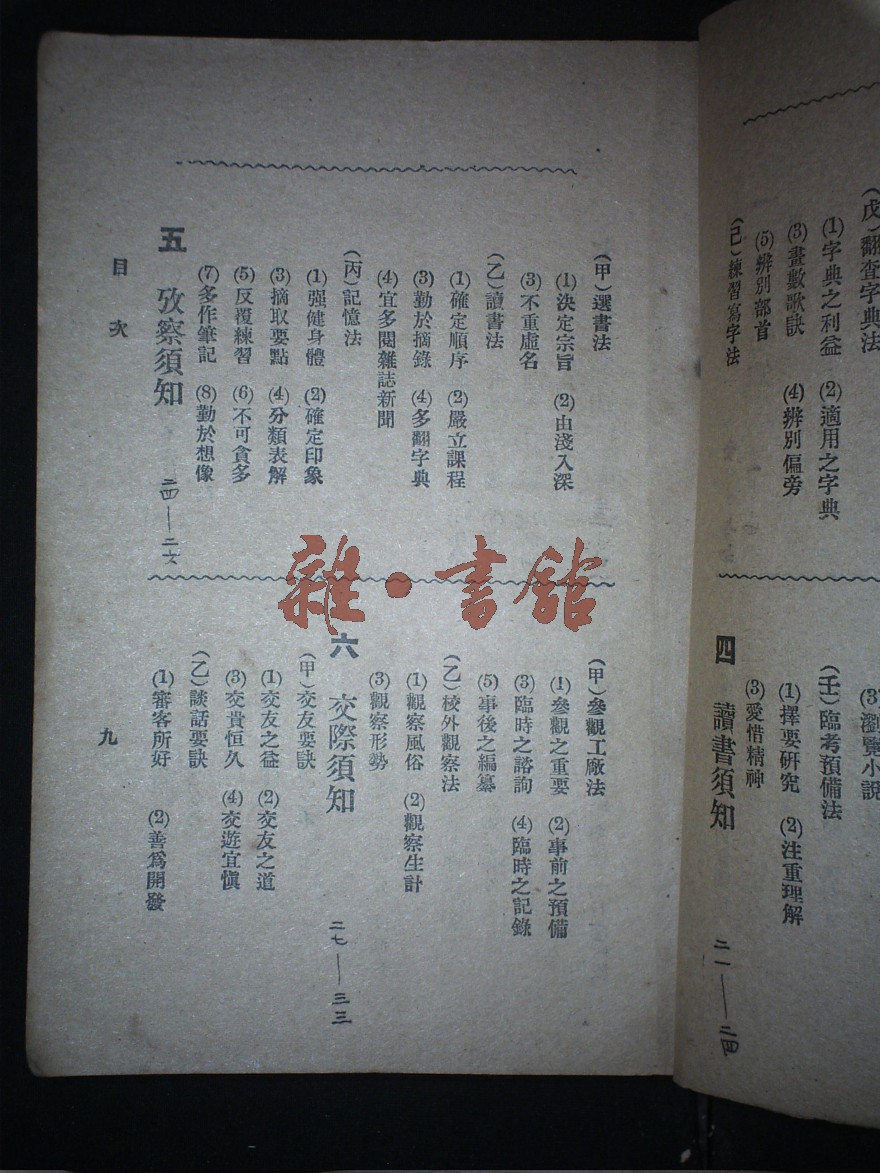 (戊)翻査字典法
(1)字典之利益 (2)適用之字典
(3)畫數歌訣 (4)辨別偏旁
(5)辨別部首
(己)練習寫字法
(3)瀏覽小說
(壬)臨考預備法
(1)擇要研究 (2)注重理解
(3)愛惜精神
四 讀書須知 二一—二四
(甲)選書法
(1)決定宗旨 (2)由淺入深
(3)不重虛名
(乙)讀書法
(1)確定順序 (2)嚴立課程
(3)勤於摘錄 (4)多翻字典
(4)宜多閱雜誌新聞
(丙)記憶法
(1)强健身體 (2)確定印象
(3)摘取要點 (4)分類表解
(5)反覆練習 (6)不可貪多
(7)多作筆記 (8)勤於想像
五 攷察須知 二四—二七
(甲)參觀工廠法
(1)參觀之重要 (2)事前之預備
(3)臨時之諮詢 (4)臨時之記錄
(5)事後之編纂
(乙)校外觀察法
(1)觀察風俗 (2)觀察生計
(3)觀察形勢
六 交際須知 二七—三三
(甲)交友要訣
(1)交友之益 (2)交友之道
(3)交貴恒久 (4)交遊宜愼
(乙)談話要訣
(1)審客所好 (2)善爲開發
目次
九
雜·書館